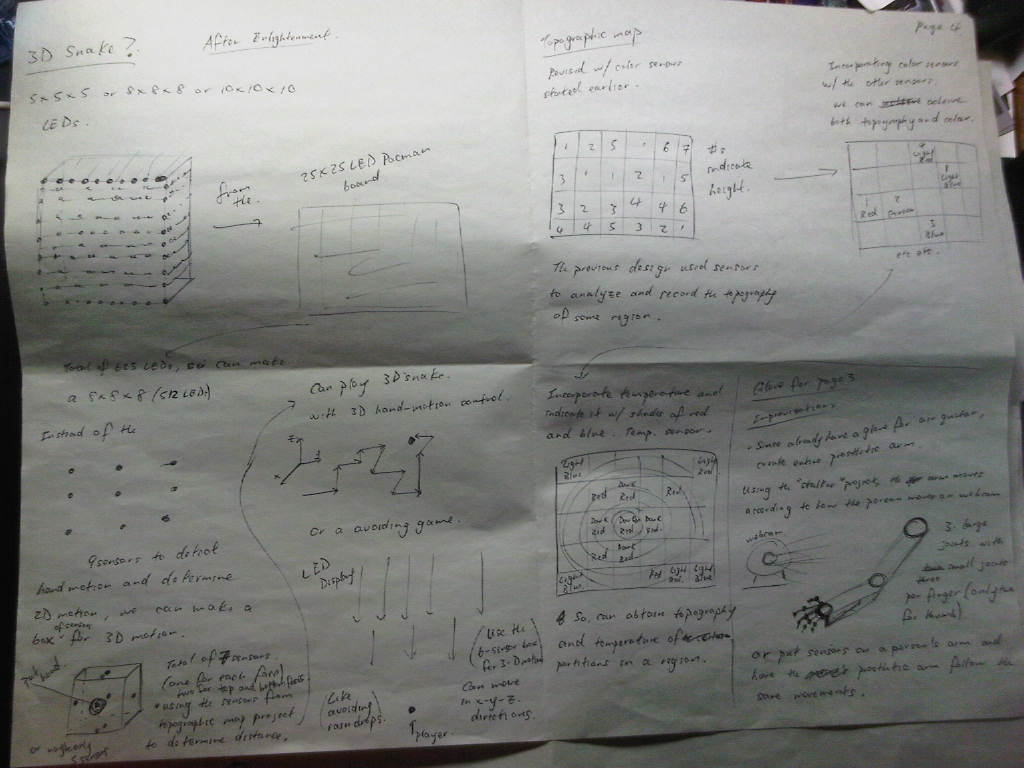 3D Snake?
After Enlightenment.
5x5x5 or 8x8x8 or 10x10x10
LEDs.
from
the.
25x25 LED Pacman
board
Total of 625 LEDs, can make
a 8x8x8 (512 LEDs)
Instead of the
9 sensors to detect
hand motion and determine
2D motion, we can make a
box of sensors for 3D motion.
put hand
Total of 7 sensors.
(one for each face)
two for top and bottom faces
• using the sensors from
topographic map project
to determine distance.
or
5 sensors
Can play 3D snake.
with 3D hand-motion control.
z
x
Or a avoiding game.
LED
Display
(Use the
6-sensor box
for 3-D motion)
(Like
avoiding
raindrops.)
player
Can move
in x-y-z.
directions.
Page 4
Topographic map
Revised w/ color sensors
stated earlier.
1 2 5 1 6 7
3 1 1 2 1 5
3 2 3 4 4 6
4 4 5 3 2 1
#s
indicate
height.
Incorporating color sensors
w/ the other sensors.
we can achieve
both topography and colour.
Light
Red
1
Light
Blue
1
Red
2
3
Blue
etc etc.
The previous design used sensors
to analyze and record the topography
of some region.
Incorporate temperature and
indicate it w/ shades of red
and blue. Temp. sensor.
Light
Blue
Light
Red
Red
Dark
Red
Red
Dark
Red
Darker
Red
Dark
Red
Red
Dark
Red
Light
Blue
Red
Light
Red
Light
Blue
So, can obtain topography
and temperature of
partitions in a region.
Glove for page 3
Improvisation.
- Since already have a glove for air guitar,
create entire prosthetic arm.
Using the "stalker" project, the arm moves
according to how the person moves on webcam
webcam
3 large
joints with
three small joints
per finger (only two
for thumb)
or put sensors on a person's arm and
have the prosthetic arm follow the
same movements.